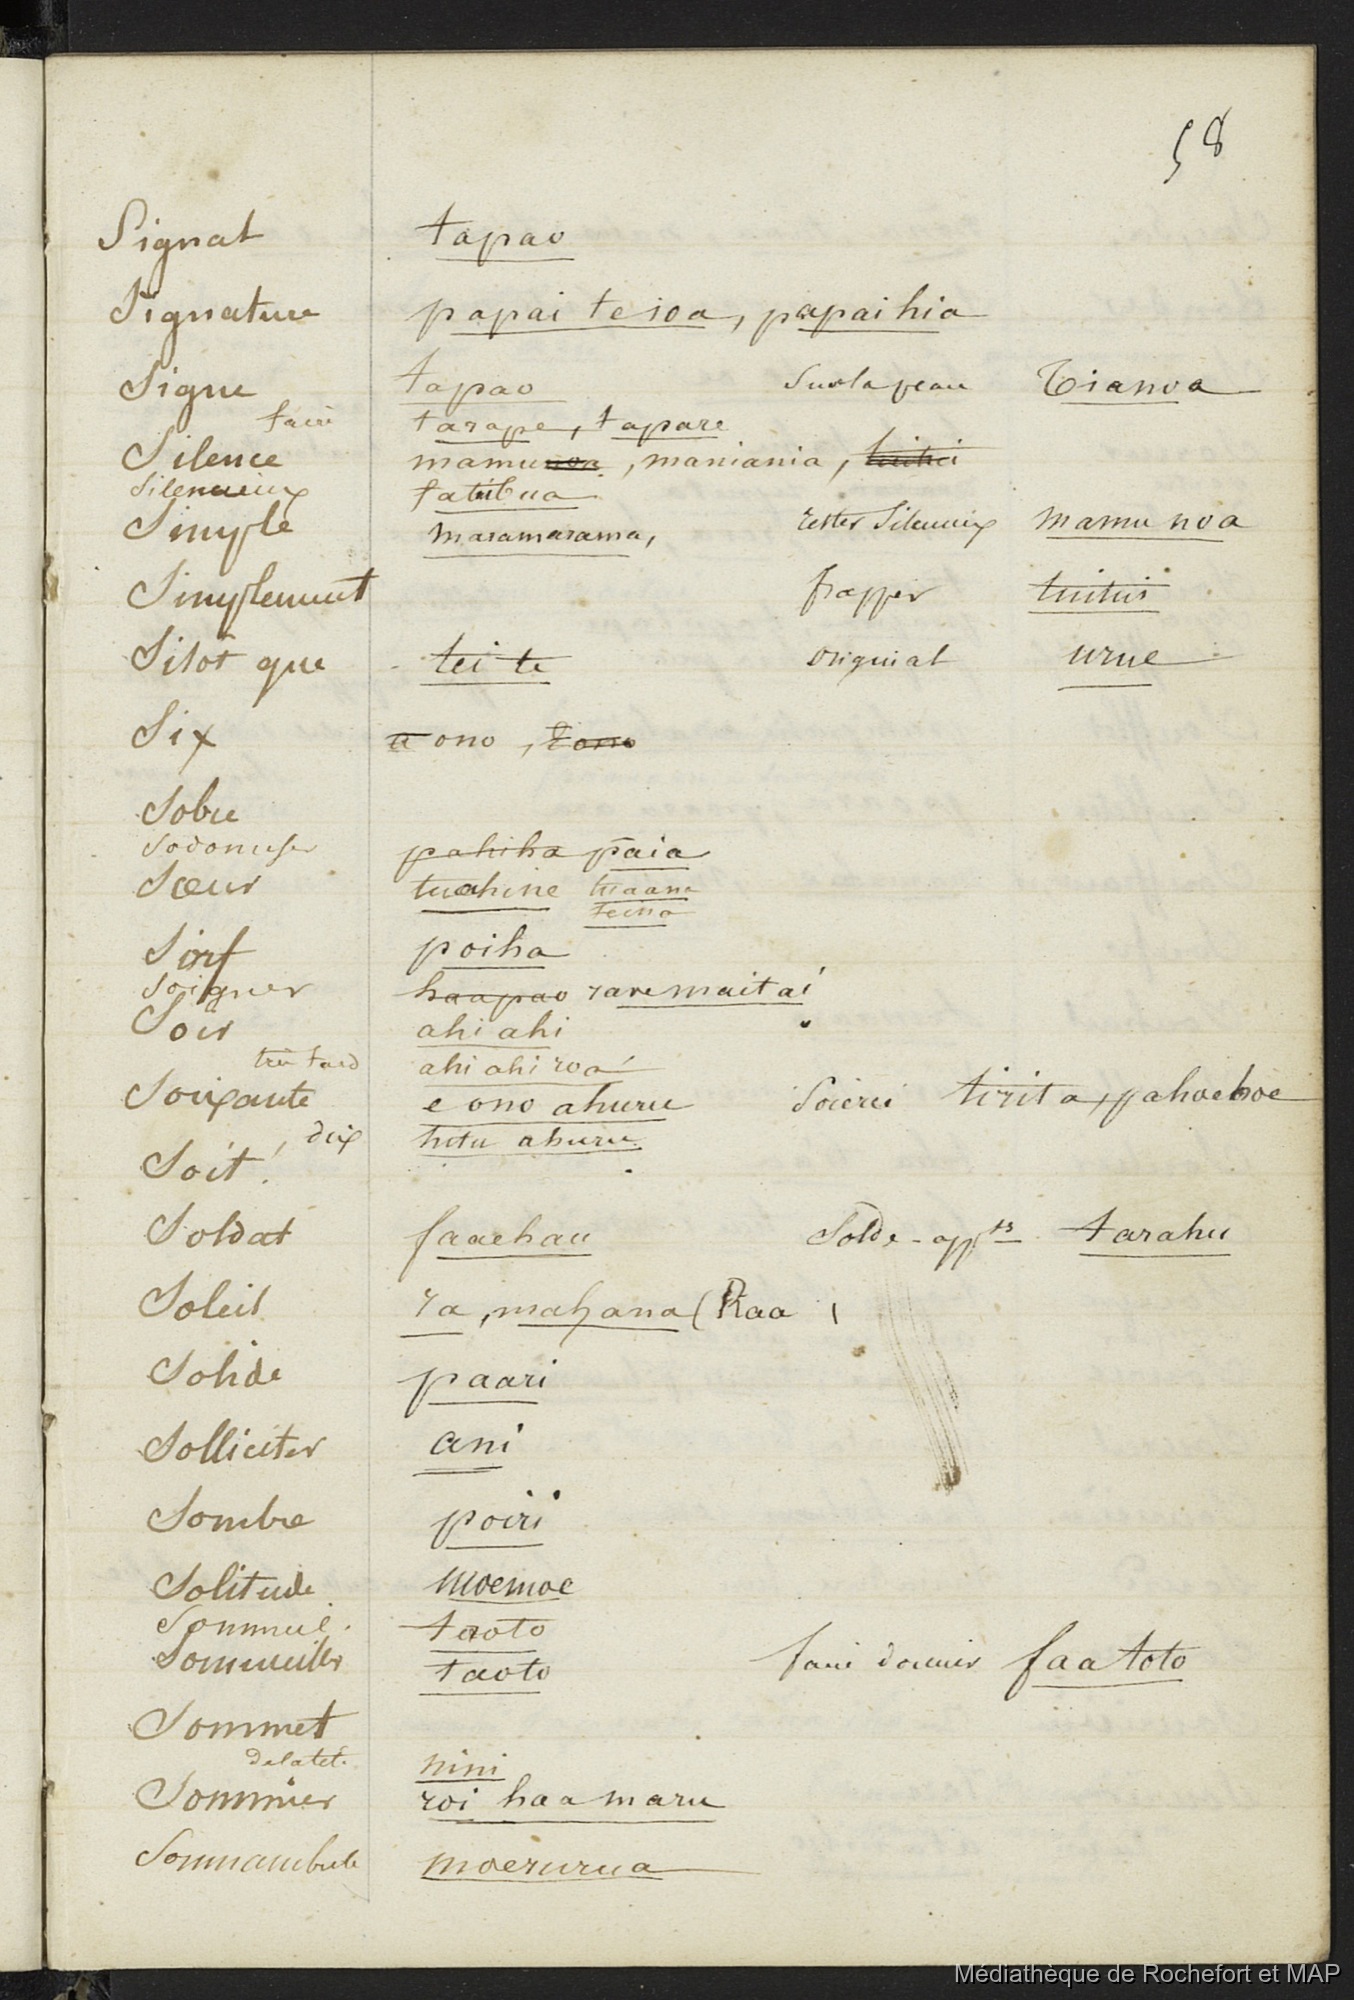 58
Signal tapao
Signature papai te ioa, papai hia
Signe tapao sur la peau Tianoa
faire tarape, tapare
Silence mamu noa, maniania, tuitui
Silencieux fatutua
Simple maramarama, rester silencieux mamu noa
Simplement frapper tuitui
Sitôt que tei te original urue
Six a ono, t ono
Sobre
Sodomiser pahiha paia
Sœur tuahine tuaane
teina
Soif poiha
Soigner haapao rave maitai
Soir ahi ahi
très tard ahi ahi roa
Soixante e ono ahuru Scierie tirita, pahoehoe
, dix hitu ahuru
Soit !
Soldat faaehau Solde - appts tarahu
Soleil ra, mahana (Raa
Solide paari
Solliciter ani
Sombre poiri
Solitude moemoe
Sommeil taoto
Sommeiller taoto faire dormir faatoto
Sommet
de la tête nini
Sommier roi haamaru
Somnambule moerurua
Médiathèque de Rochefort et MAP